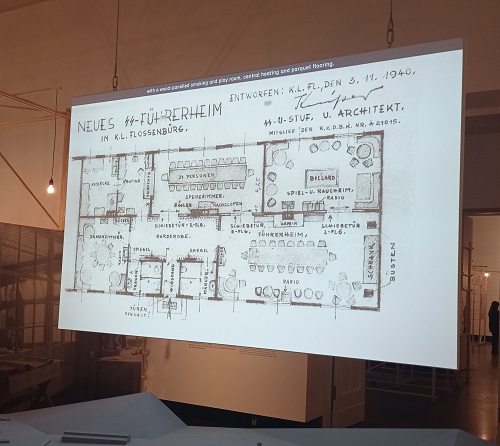 with a wood-panelled smoking and play room, central heating and parquet flooring.
NEUES SS-FÜHRERHEIM
IN K.L. FLOSSENBÜRG,
ENTWORFEN: K.L.FL., DEN 3. 11. 1940.
SS-U-STUF. U. ARCHITEKT.
MITGLIED DER R.K.D.B.K. NR. A21015.
25 PERSONEN
SPEISEZIMMER.
BILLARD
SPIEL-U-RAUCHEIM,
RADIO
SCHIEBETÜR
SCHIEBETÜR
SCHIEBETÜR
2-FLG.
KAMIN
DAMENZIMMER,
GARDEROBE.
FÜHRERHEIM,
SPIEGEL
SPIEGEL
RADIO
SCHRANK
BÜSTEN
WINDFANG
TÜREN